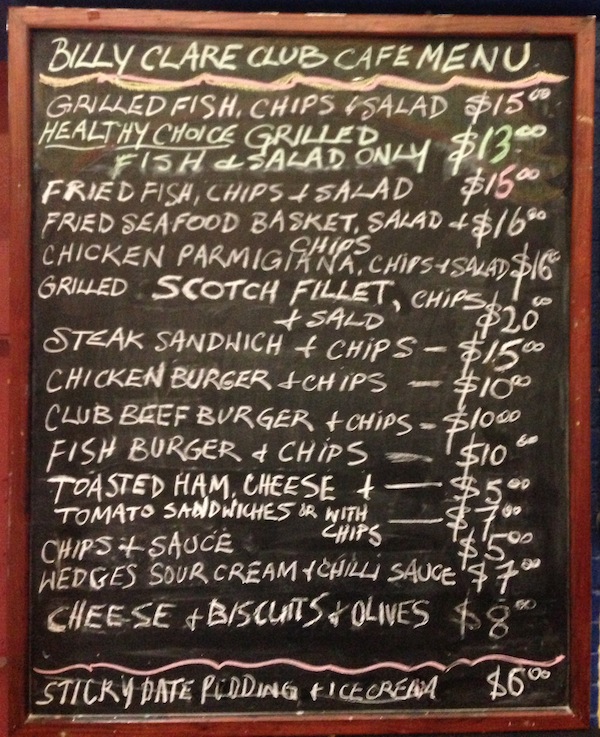 BILLY CLARE CLUB CAFE MENU
GRILLED FISH, CHIPS & SALAD $15.00
HEALTHY CHOICE GRILLED
FISH & SALAD ONLY $13.00
FRIED FISH, CHIPS & SALAD $15.00
FRIED SEAFOOD BASKET, SALAD + $16.00
CHIPS
CHICKEN PARMIGIANA, CHIPS + SALAD $16
GRILLED SCOTCH FILLET, CHIPS
+ SALD $20.00
STEAK SANDWICH + CHIPS - $15.00
CHICKEN BURGER + CHIPS - $10.00
CLUB BEEF BURGER + CHIPS - $10.00
FISH BURGER & CHIPS - $10.00
TOASTED HAM, CHEESE + - $5.00
TOMATO SANDWICHES OR WITH CHIPS - $7.00
CHIPS + SAUCE $5.00
WEDGES SOUR CREAM + CHILLI SAUCE $7.00
CHEESE + BISCUITS + OLIVES $8.00
STICKY DATE PUDDING + ICECREAM $6.00